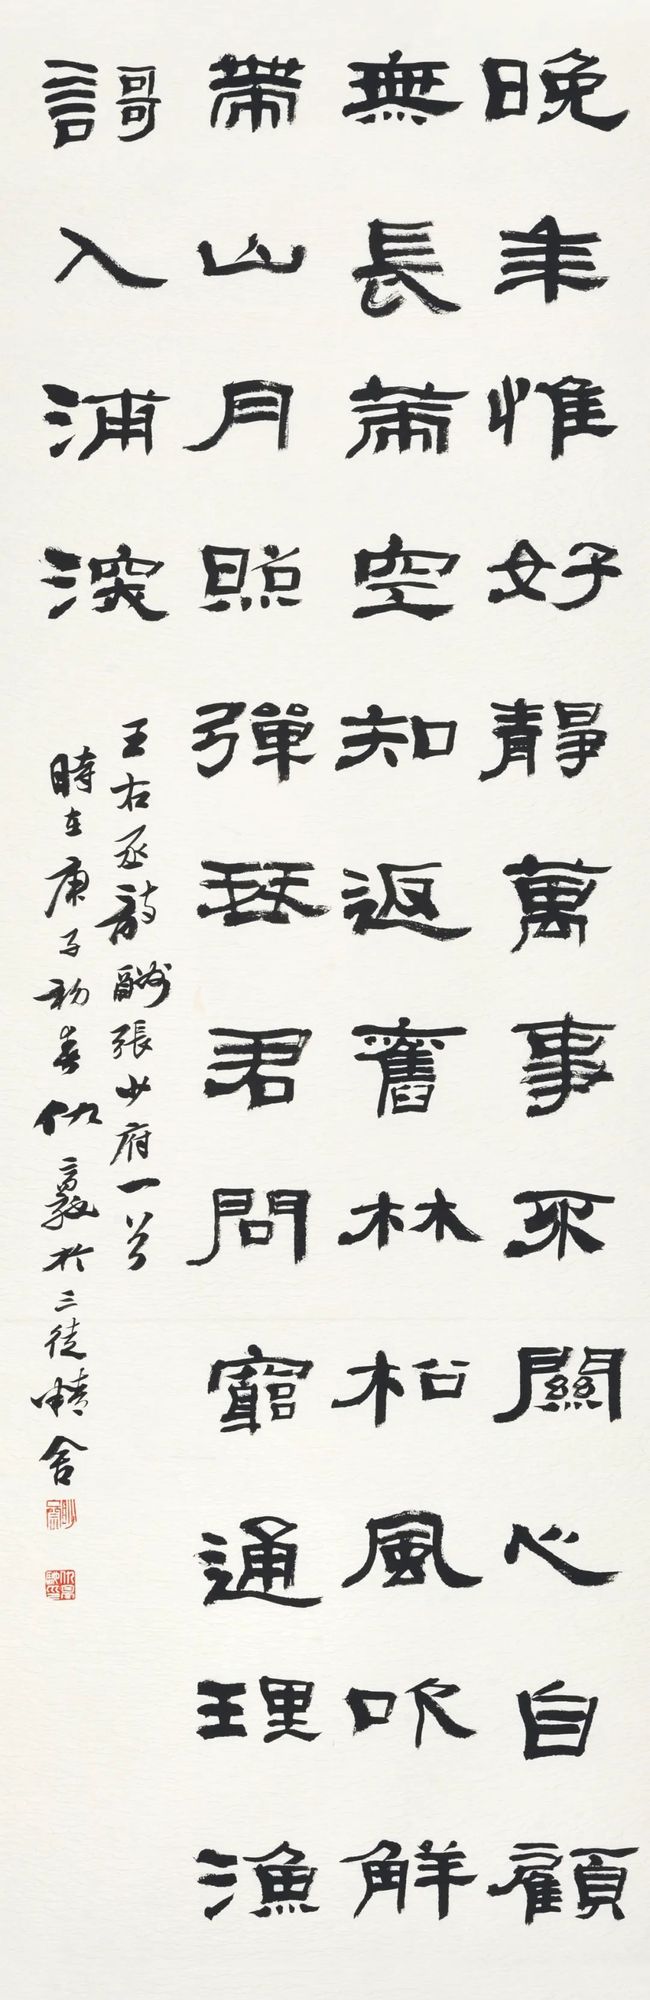 晚年惟好靜萬事不關心自顧
無長策空知返舊林松風吹解
帶山月照彈琴君問窮通理漁
謌入浦深
王右丞詩酬張少府一首
時在庚子初春仇敦於三徒精舍